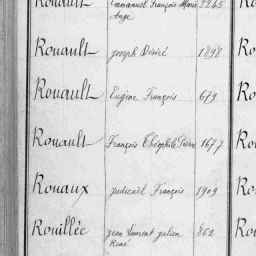 Rouault Emmanuel François Marie 2245
Ange
Rouault Joseph Désiré 1898
Rouault Eugène François 679
Rouault François Théophile Pierre 1677
Rouaux Judicaël François 1909
Rouillée Jean Laurent Julien 862
René